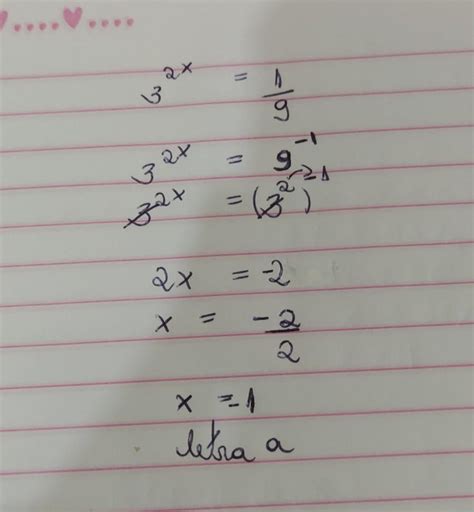 3^2x = 1/9
3^2x = 9^-1
3^2x = (3^2)^-1
2x = -2
x = -2/2
x = -1
letra a